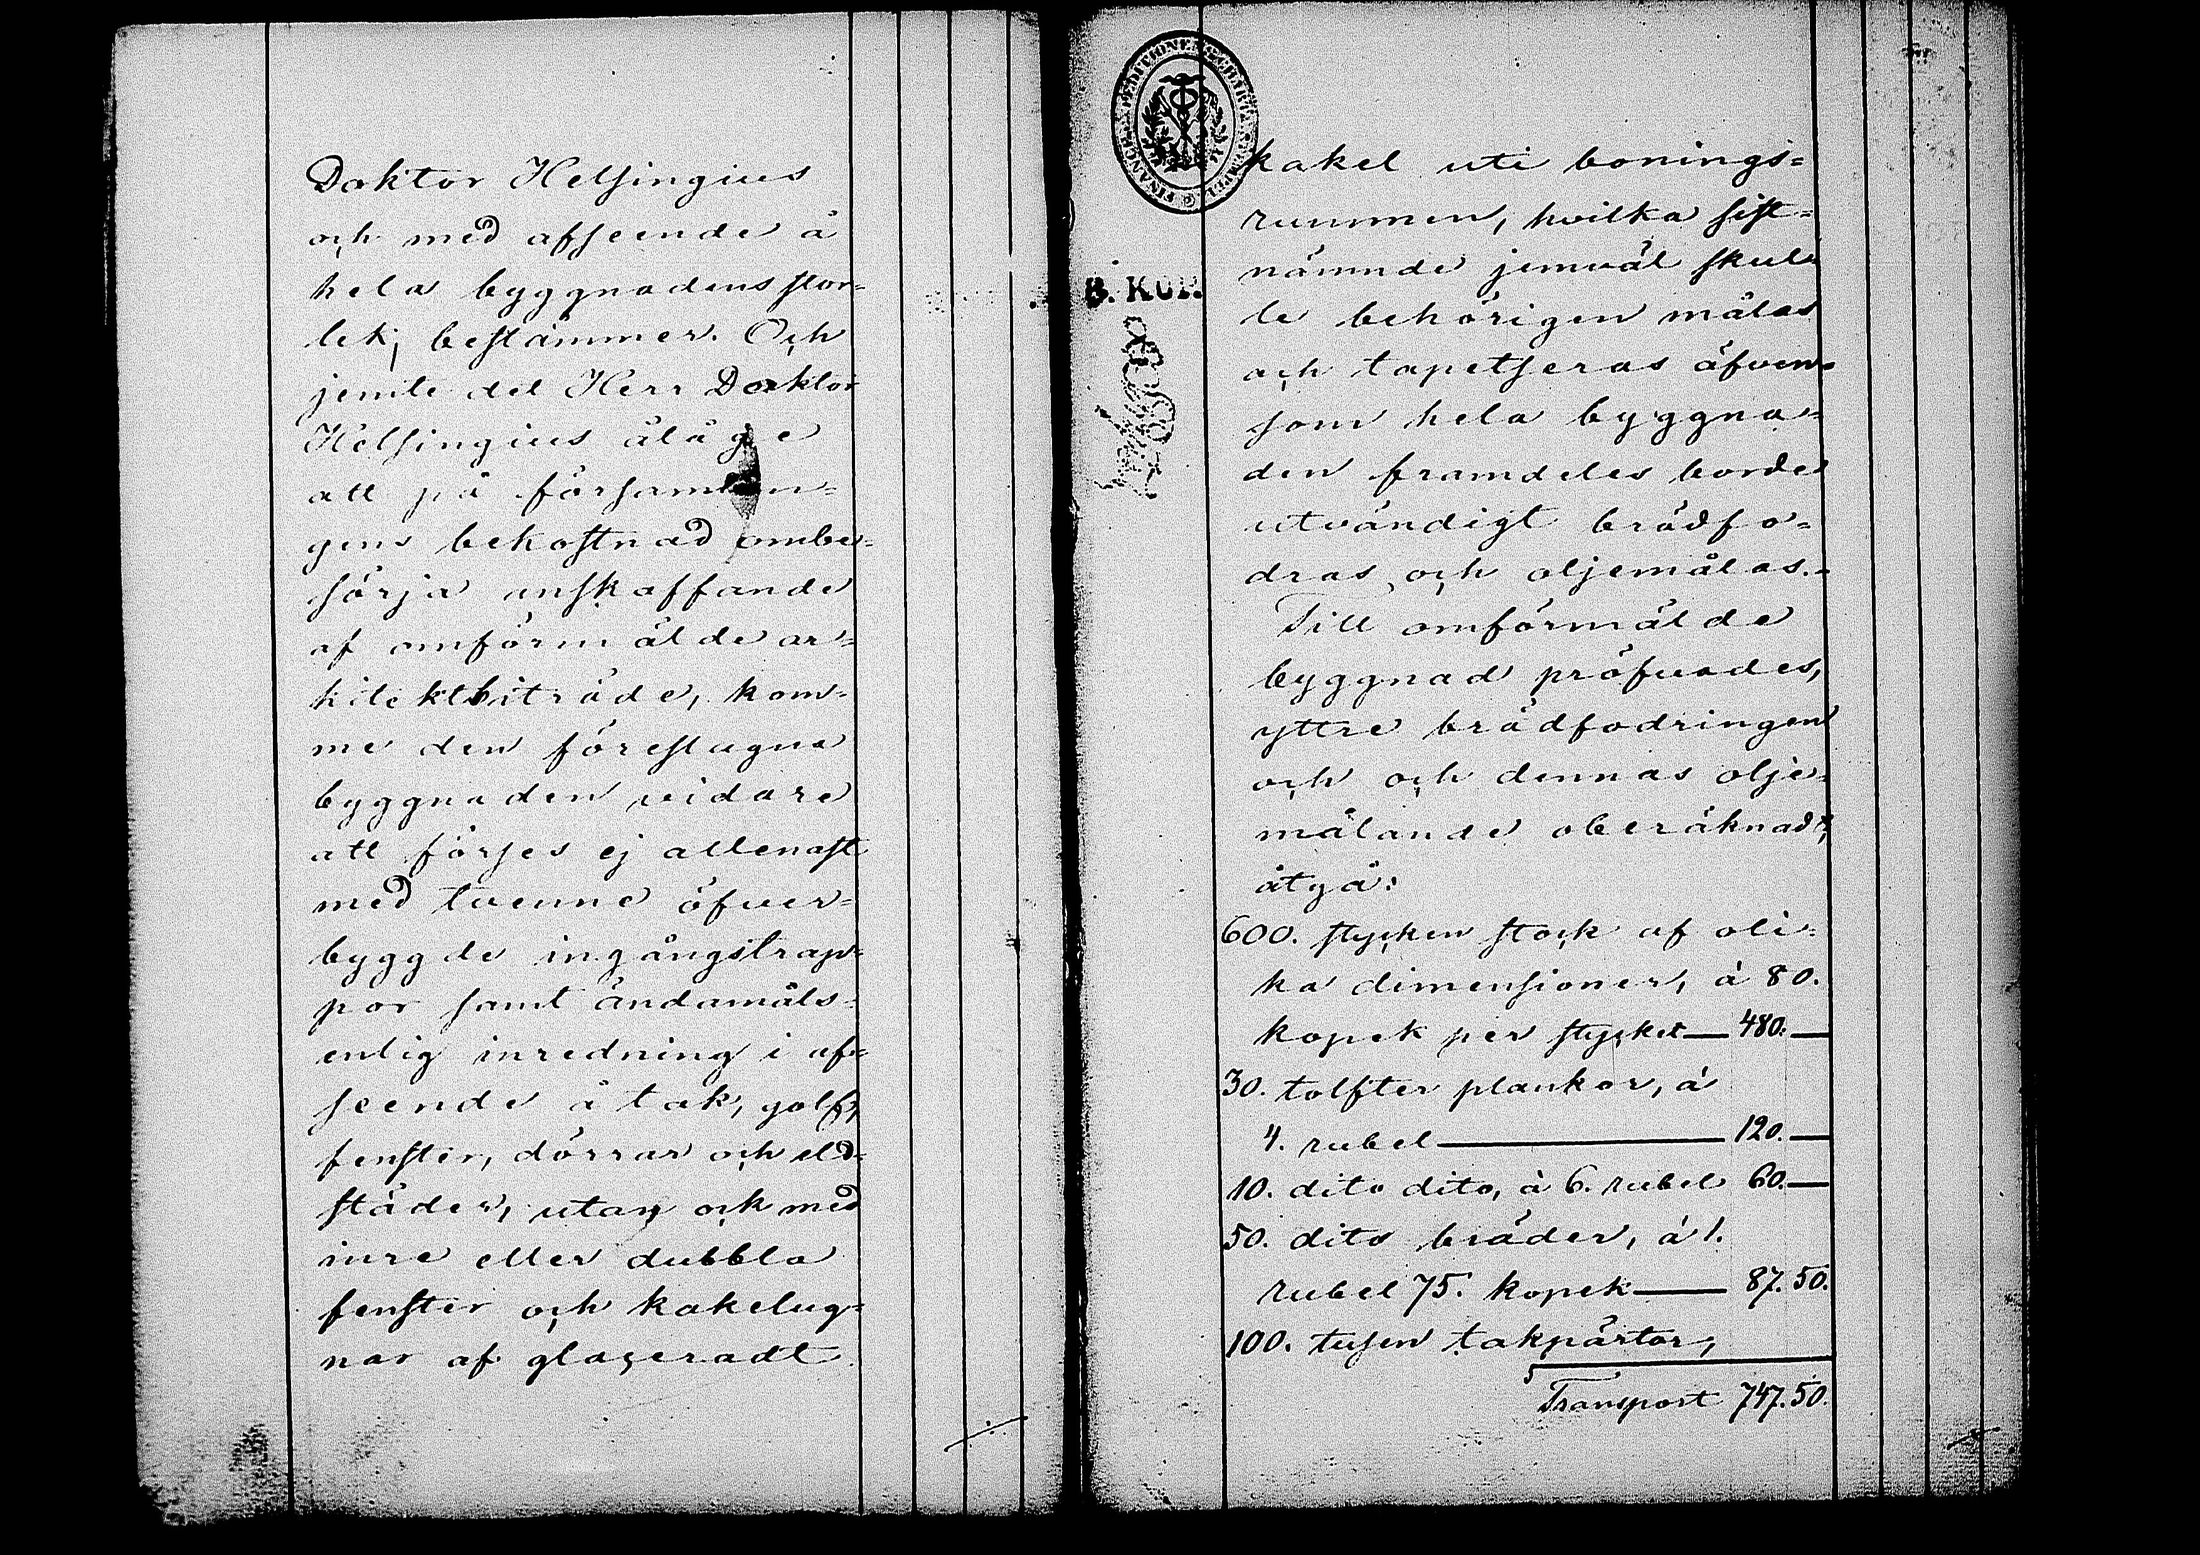 Doktor Helsingius
och med afseende å
hela byggnadens stor-
lek, bestämmer. Och
jemte det Herr Doktor
Helsingius ålåge
att på församlin-
gens bekostnad ombe-
sörja anskaffande
af omförmälde ar-
kitektbiträde, kom-
me den föreslagna
byggnaden vidare
att förses ej allenast
med tvenne öfver-
byggde ingångstrap-
por samt ändamåls-
enlig inredning i af-
seende å tak, golf,
fenster, dörrar och eld-
städer, utan ock med
inre eller dubbla
fenster och kakelug-
nar af glaseradt
kakel uti bonings-
rummen, hvilka sist-
nämnde jemväl skul-
le behörigen målas
och tapetseras äfven-
som hela byggna-
den framdeles borde
utvändigt brädfo-
dras och oljemålas.-
Till omförmälde
byggnad pröfvades,
yttre brädfodringen
och och dennas olje-
målande oberäknadt,
åtgå:
600. stycken stock af oli-
ka dimensioner, à 80.
kopek per stycket — 480. —
30. tolfter plankor, à
4. rubel — 120. —
10. dito dito, à 6. rubel 60. —
50. dito bräder, à 1.
rubel 75. kopek — 87. 50.
100. tusen takpärtor,
Transport 747. 50.
B. KOP.